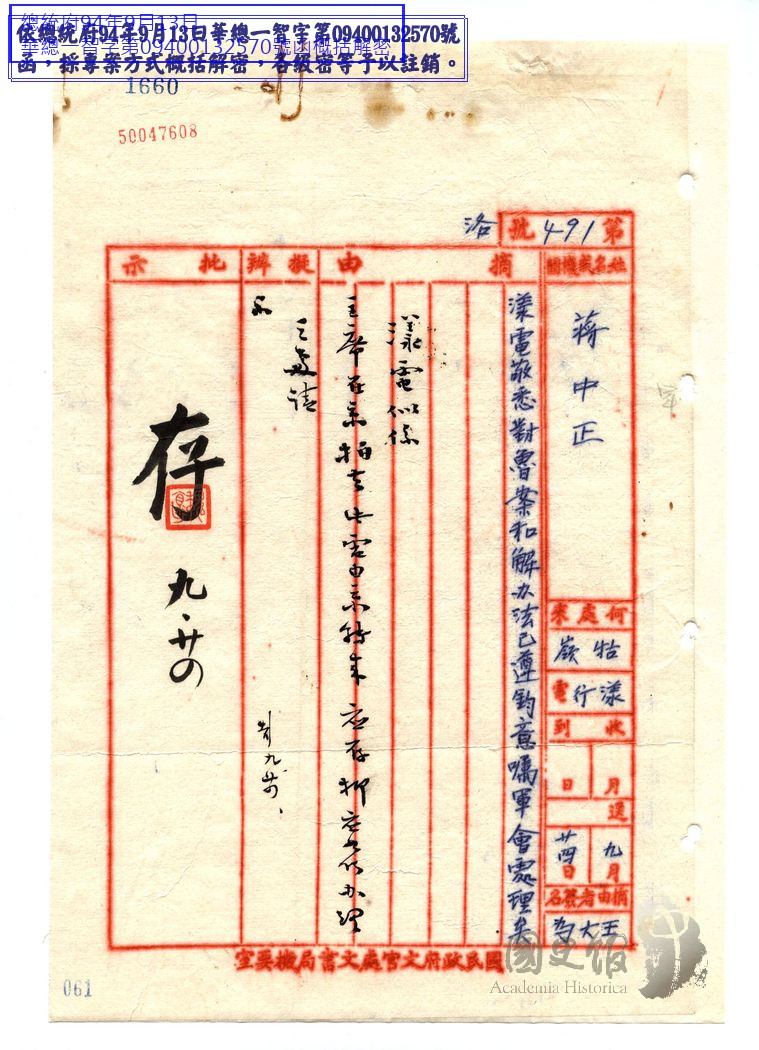 總統府94年9月13日
華總一智字第09400132570號函概括解密
依總統府94年9月13日華總一智字第09400132570號
函，採專案方式概括解密，各級密等予以註銷。
1660
50047608
第491號
洛
姓名或機關
蔣中正
何處來
牯嶺
漾行電
收到
月
日
送
九月
廿四日
摘由者簽名
王大為
摘由
漾電敬悉對魯案和解办法已遵鈞意囑軍會處理矣
漾電似係
主席在京拍去此電由京轉來 应存抑应另行办理
擬辦
示
批示
存
九、廿四
國民政府文官處文書局機要室
061
國史館
Academia Historica